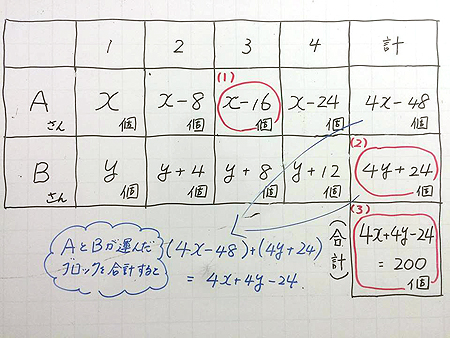 1 2 3 4 計
(1)
A さん x 個 x-8 個 x-16 個 x-24 個 4x-48 個
(2)
B さん y 個 y+4 個 y+8 個 y+12 個 4y+24 個
(3)
AとBが運んだ
ブロックを合計すると
(4x-48)+(4y+24)
= 4x+4y-24
(合計)
4x+4y-24
= 200
個